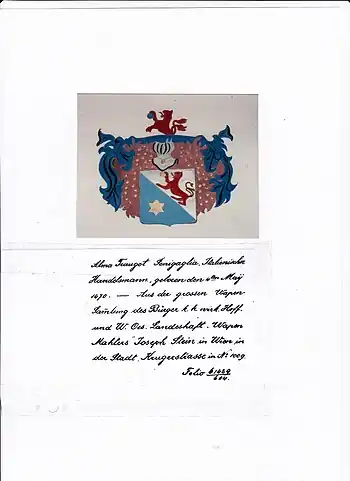 Alma Traugot Senigaglia, Italienische
Handelsmann, geboren den 4ten Maÿ
1670. — Aus der grossen Wapen
Samlung des Bürger k. k. wirk. Hoff.
und W. Oes. Landeshaft. Wapen
Mahlers Joseph Stein in Wien in
der Stadt, Krugerstrasse in No 1009.
Folio